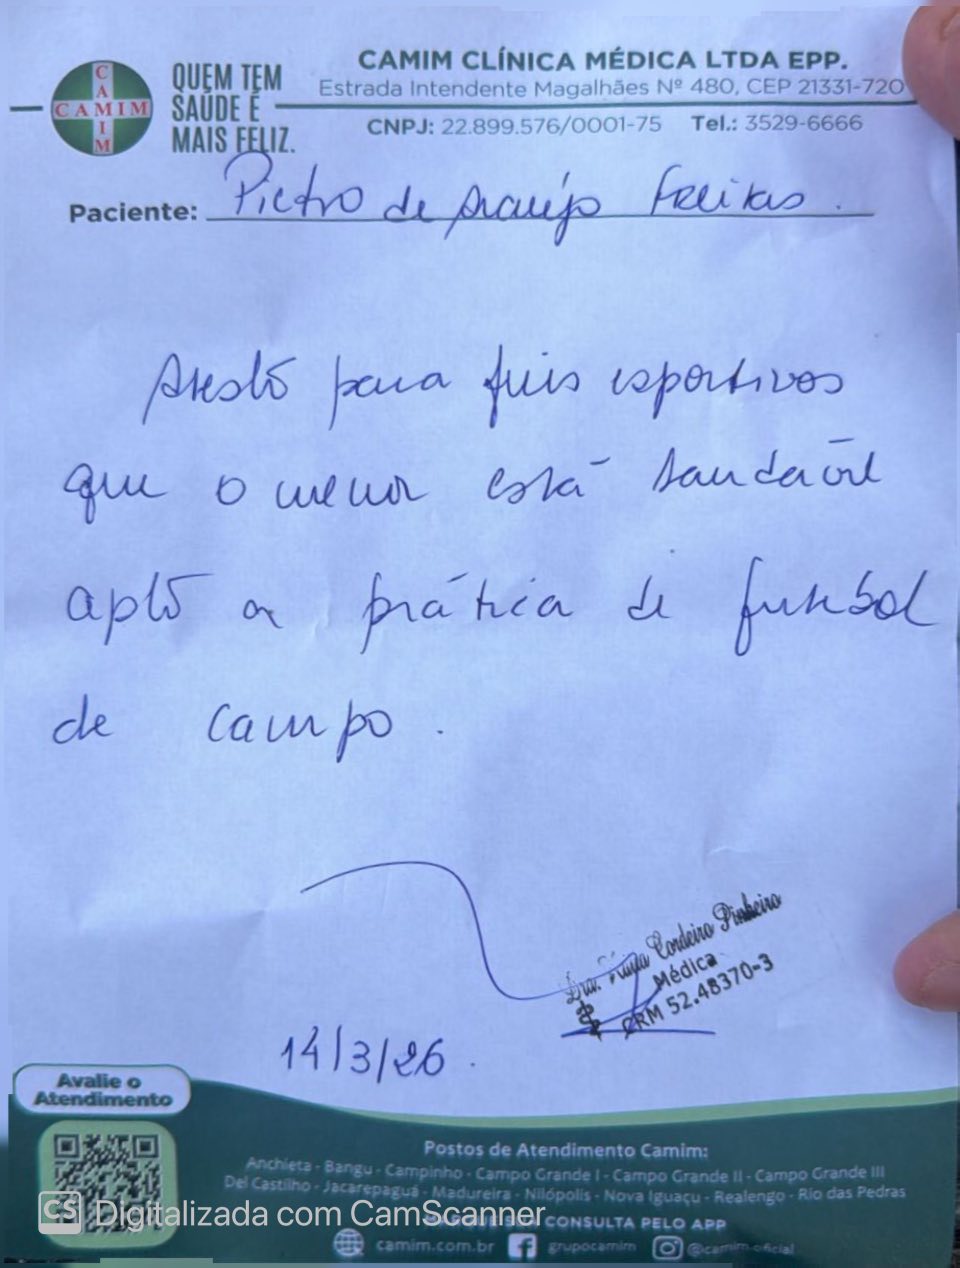 CAMIM
CAMIM
QUEM TEM
SAÚDE É
MAIS FELIZ.
CAMIM CLÍNICA MÉDICA LTDA EPP.
Estrada Intendente Magalhães Nº 480, CEP 21331-720
CNPJ: 22.899.576/0001-75 Tel.: 3529-6666
Paciente: Pietro de Araújo Freitas.
Atesto para fins esportivos
que o menor está saudável
apto a prática de futebol
de campo.
Dra. Cordeiro Pinheiro
Médica
CRM 52.48370-3
14/3/26.
Avalie o
Atendimento
Postos de Atendimento Camim:
Anchieta - Bangu - Campinho - Campo Grande I - Campo Grande II - Campo Grande III
Del Castilho - Jacarepaguá - Madureira - Nilópolis - Nova Iguaçu - Realengo - Rio das Pedras
CONSULTA PELO APP
CS Digitalizada com CamScanner
camim.com.br grupocamim @camim.oficial